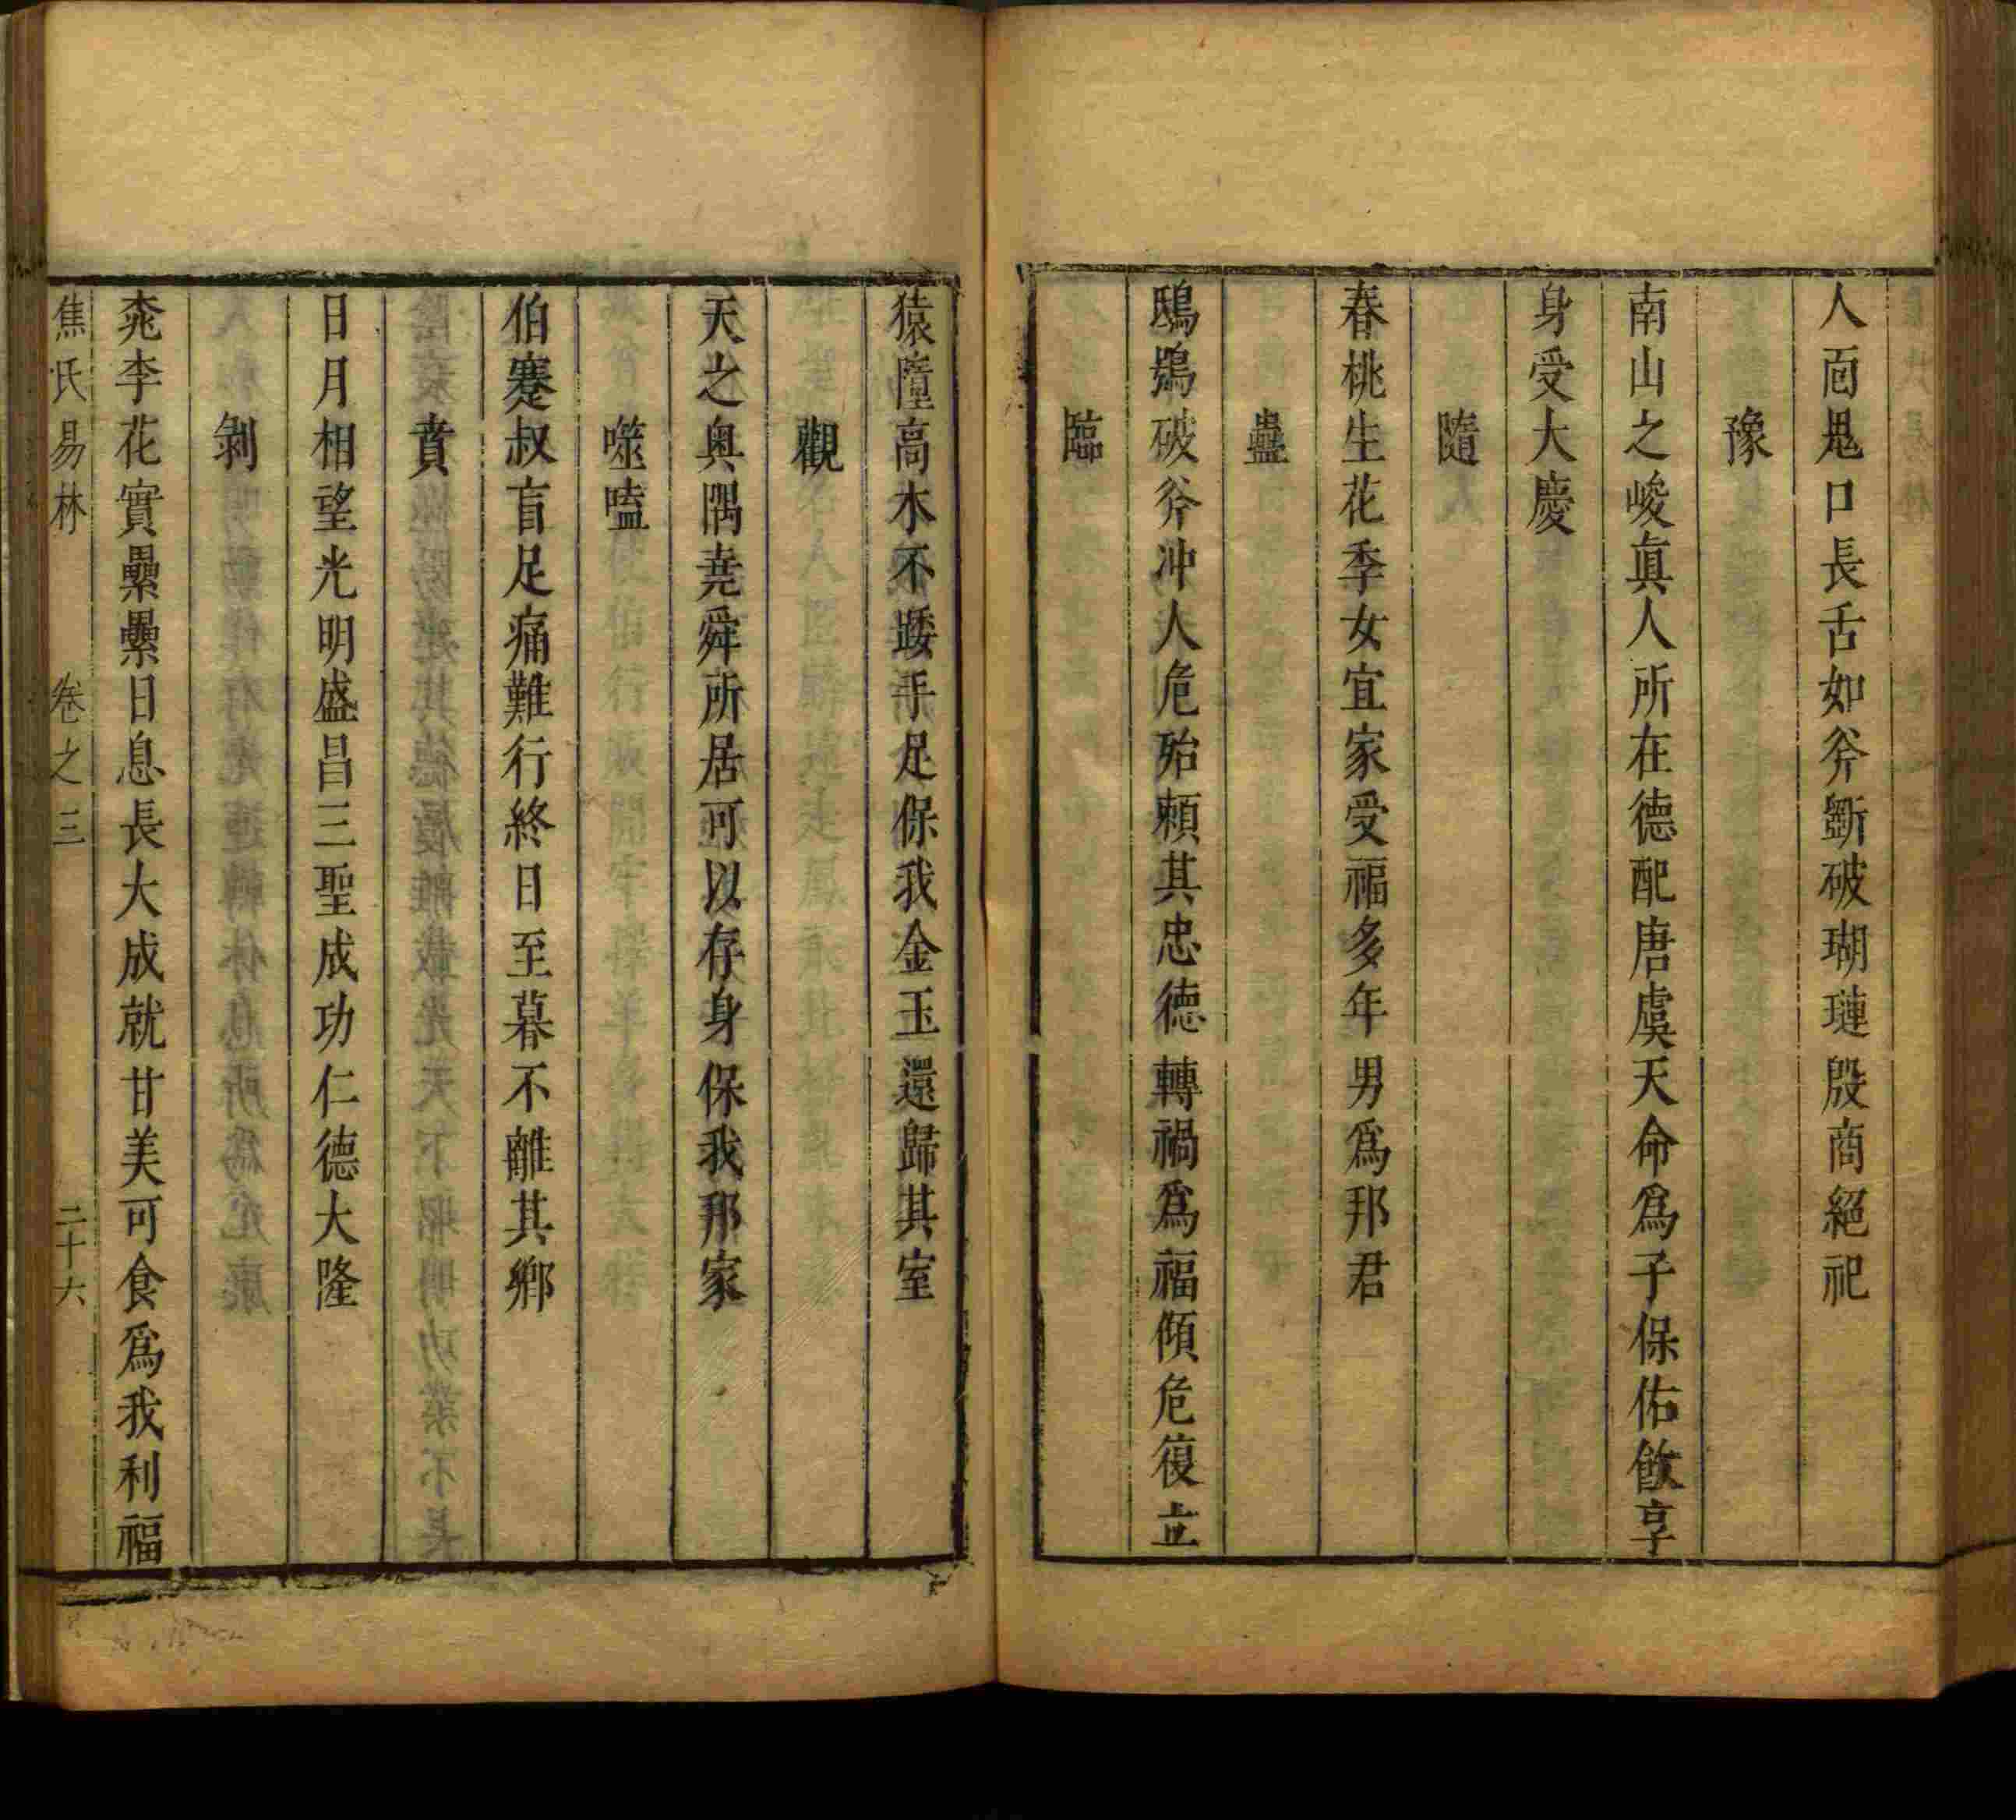 人面鬼口長舌如斧斵破瑚璉殷商絕祀
豫
南山之峻眞人所在德配唐虞天命爲子保佑飮享
身受大慶
隨
春桃生花季女宜家受福多年男爲邦君
蠱
鴟鴞破斧冲人危殆賴其忠德轉禍爲福傾危復立
臨
猿墮高木不踒手足保我金玉還歸其室
觀
天之奥隅堯舜所居可以存身保我邦家
噬嗑
伯蹇叔盲足痛難行終日至暮不離其鄕
賁
日月相望光明盛昌三聖成功仁德大隆
剝
桃李花實纍纍日息長大成就甘美可食爲我利福
焦氏易林 卷之三 二十六